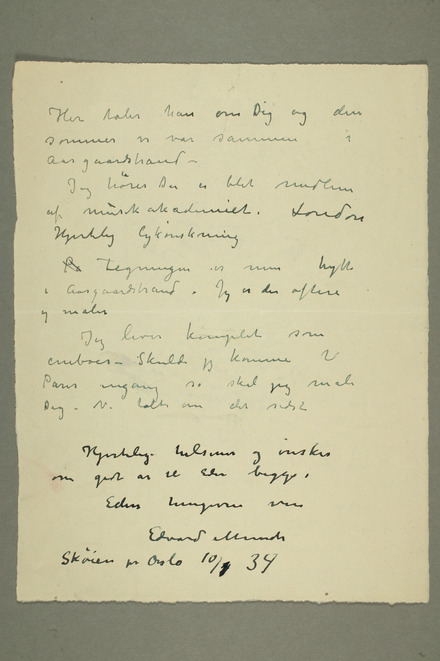 Her taler han om Dig og den
sommer vi var sammen i
Aasgaardstrand –
Jeg hører Du er blet medlem
af musikakademiet. London
Hjertelig lykønskning
På Tegningen er min hytte
i Aasgaardstrand. Jeg er der oftere
og maler
Jeg lever komplet som
eneboer – Skulde jeg komme til
Paris engang så skal jeg male
Dig. Vi talte om det sidst
Hjertelig hilsener og ønsker
om godt år til Eder begge.
Eders hengivne ven
Edvard Munch
Skøien pr Oslo 10/1 34